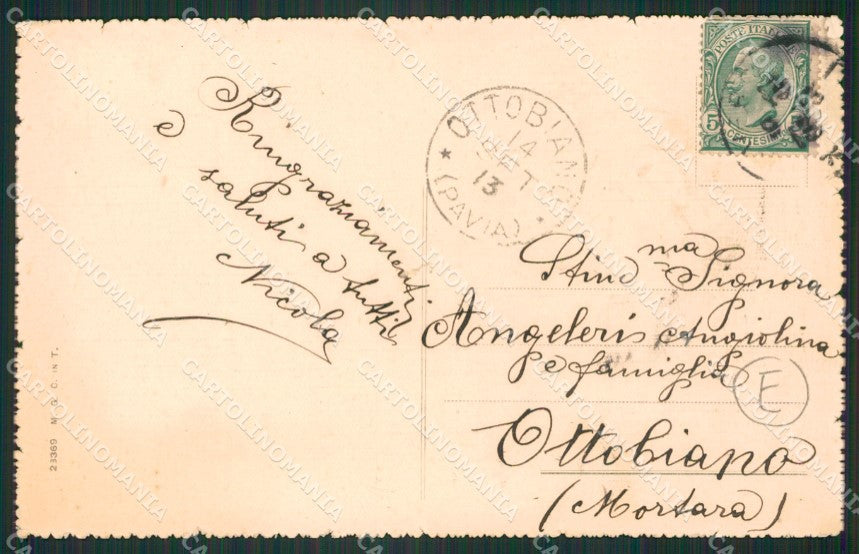 Ringraziamenti
e saluti a tutti
Nicola
23369 M. G. C. IN T.
OTTOBIANO
14
SET
13
(PAVIA)
POSTE ITALIANE
5
CENTESIMI
Stim ma Signora
Angeleris Angiolina
e famiglia
E
Ottobiano
(Mortara)
CARTOLINOMANIA